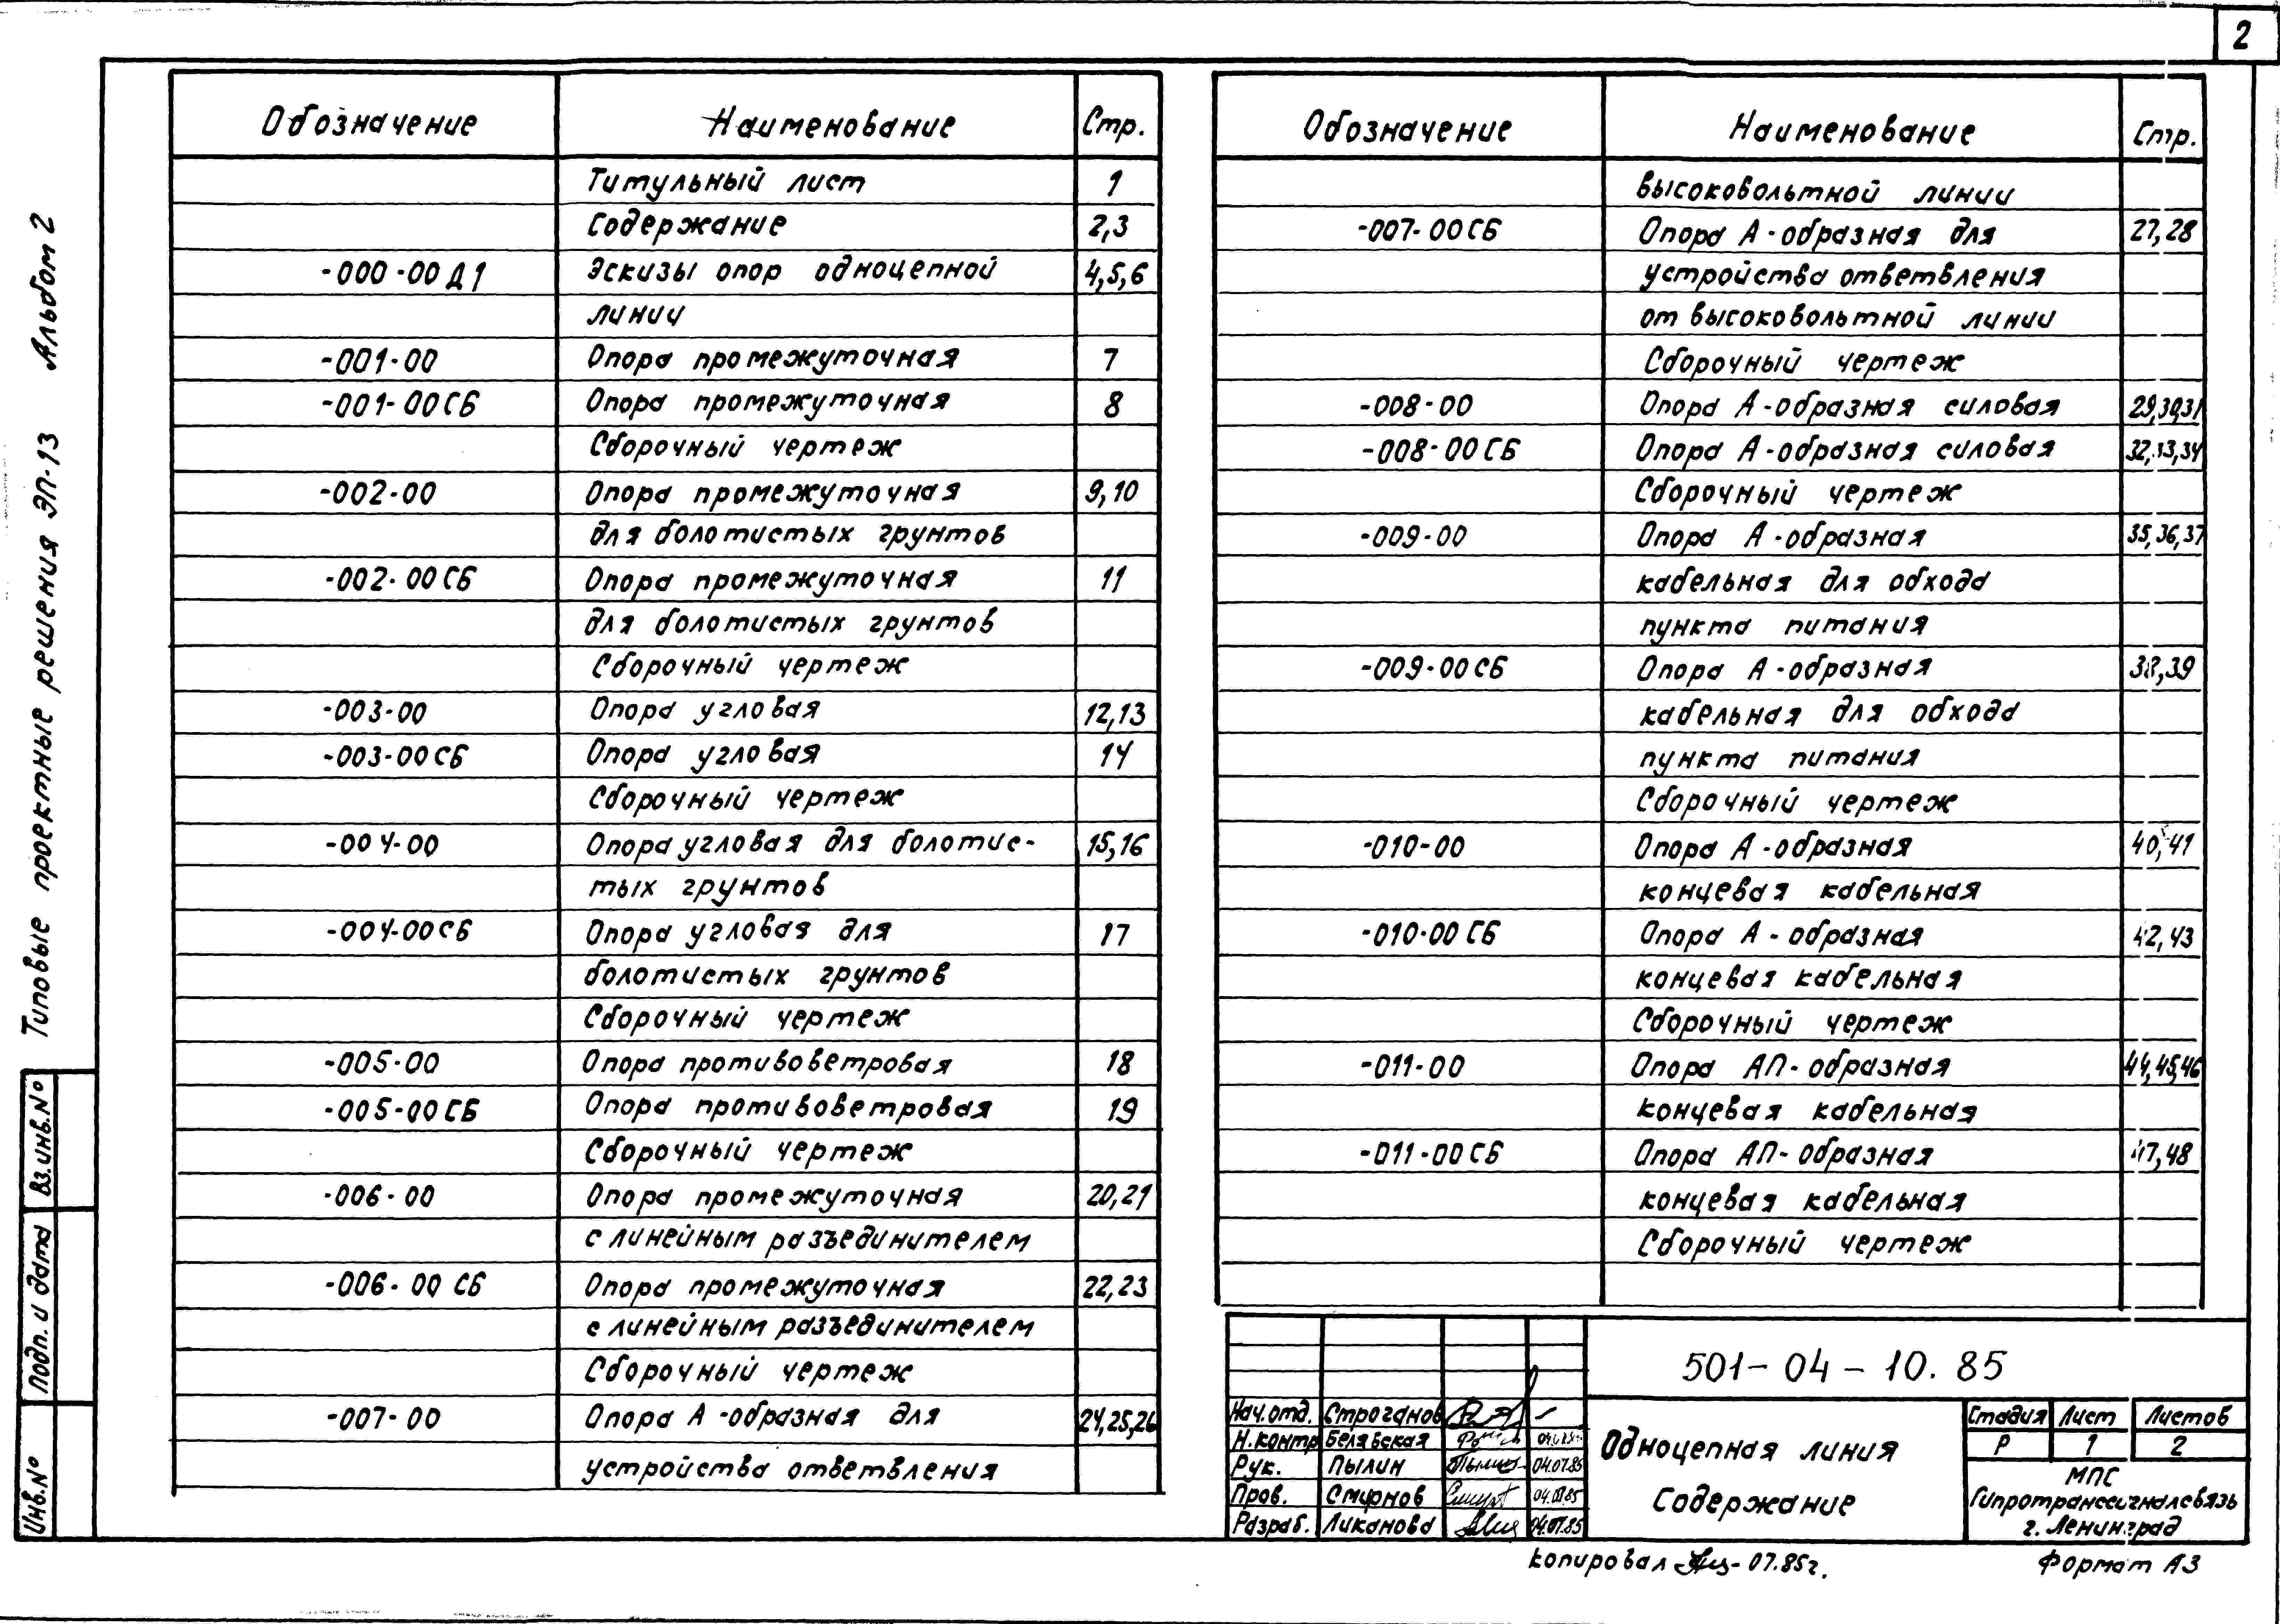 2
Обозначение Наименование Стр.
Титульный лист 1
Содержание 2,3
-000-00 Д1 Эскизы опор одноцепной 4,5,6
линии
-001-00 Опора промежуточная 7
-001-00СБ Опора промежуточная 8
Сборочный чертеж
-002-00 Опора промежуточная 9,10
для болотистых грунтов
-002-00СБ Опора промежуточная 11
для болотистых грунтов
Сборочный чертеж
-003-00 Опора угловая 12,13
-003-00СБ Опора угловая 14
Сборочный чертеж
-004-00 Опора угловая для болотис- 15,16
тых грунтов
-004-00СБ Опора угловая для 17
болотистых грунтов
Сборочный чертеж
-005-00 Опора противоветровая 18
-005-00СБ Опора противоветровая 19
Сборочный чертеж
-006-00 Опора промежуточная 20,21
с линейным разъединителем
-006-00 СБ Опора промежуточная 22,23
с линейным разъединителем
Сборочный чертеж
-007-00 Опора А-образная для 24,25,26
устройства ответвления
Обозначение Наименование Стр.
высоковольтной линии
-007-00СБ Опора А-образная для 27,28
устройства ответвления
от высоковольтной линии
Сборочный чертеж
-008-00 Опора А-образная силовая 29,30,31
-008-00СБ Опора А-образная силовая 32,33,34
Сборочный чертеж
-009-00 Опора А-образная 35,36,37
кабельная для обхода
пункта питания
-009-00СБ Опора А-образная 38,39
кабельная для обхода
пункта питания
Сборочный чертеж
-010-00 Опора А-образная 40,41
концевая кабельная
-010-00СБ Опора А-образная 42,43
концевая кабельная
Сборочный чертеж
-011-00 Опора АП-образная 44,45,46
концевая кабельная
-011-00СБ Опора АП-образная 47,48
концевая кабельная
Сборочный чертеж
501-04-10.85
Нач.отд. Строганов
Н.контр Белявская
Рук. Пылин 04.07.85
Пров. Смирнов 04.07.85
Разраб. Ликанова 04.07.85
Одноцепная линия
Содержание
Стадия Лист Листов
Р 1 2
МПС
Гипротранссигналсвязь
г. Ленинград
Копировал 07.85г.
Формат А3
Типовые проектные решения ЭП-13 Альбом 2
Инв.№ Подп. и дата Вз.инв.№